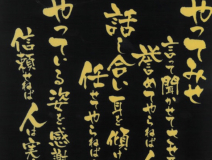 やってみせ
言って聞かせてさせ
誉めてやらねば人
話し合い耳を傾け
任せてやらねば人
やっている姿を感謝
信頼せねば人は実